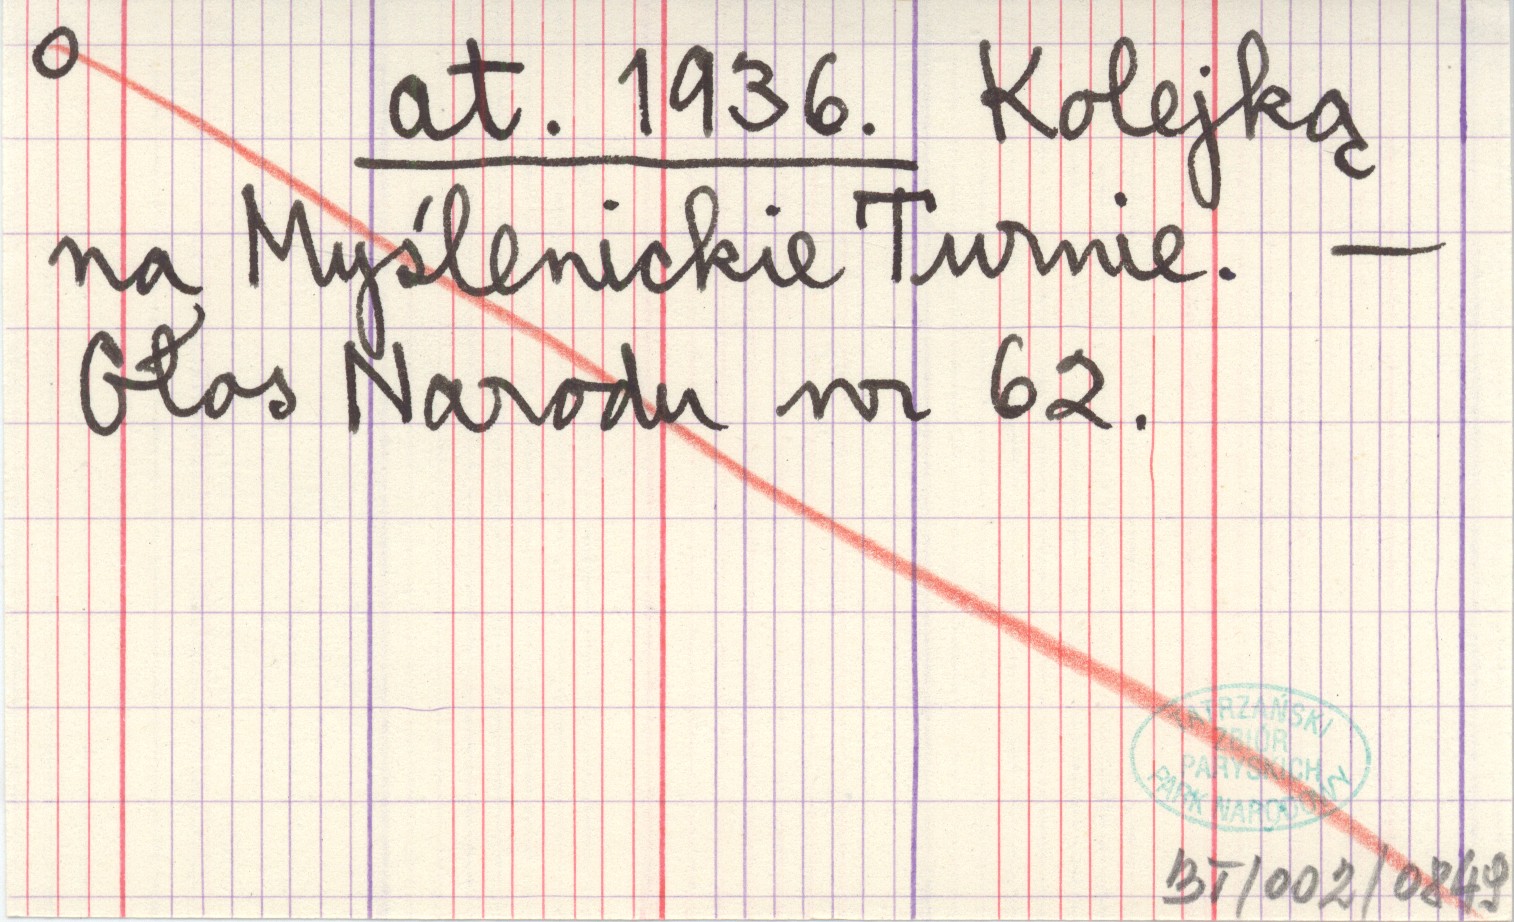 O at. 1936. Kolejką
na Myślenickie Turnie. —
Głos Narodu nr 62.
TATRZAŃSKI
ZBIÓR
PARYSKICH
PARK NARODOWY
BT/002/0849